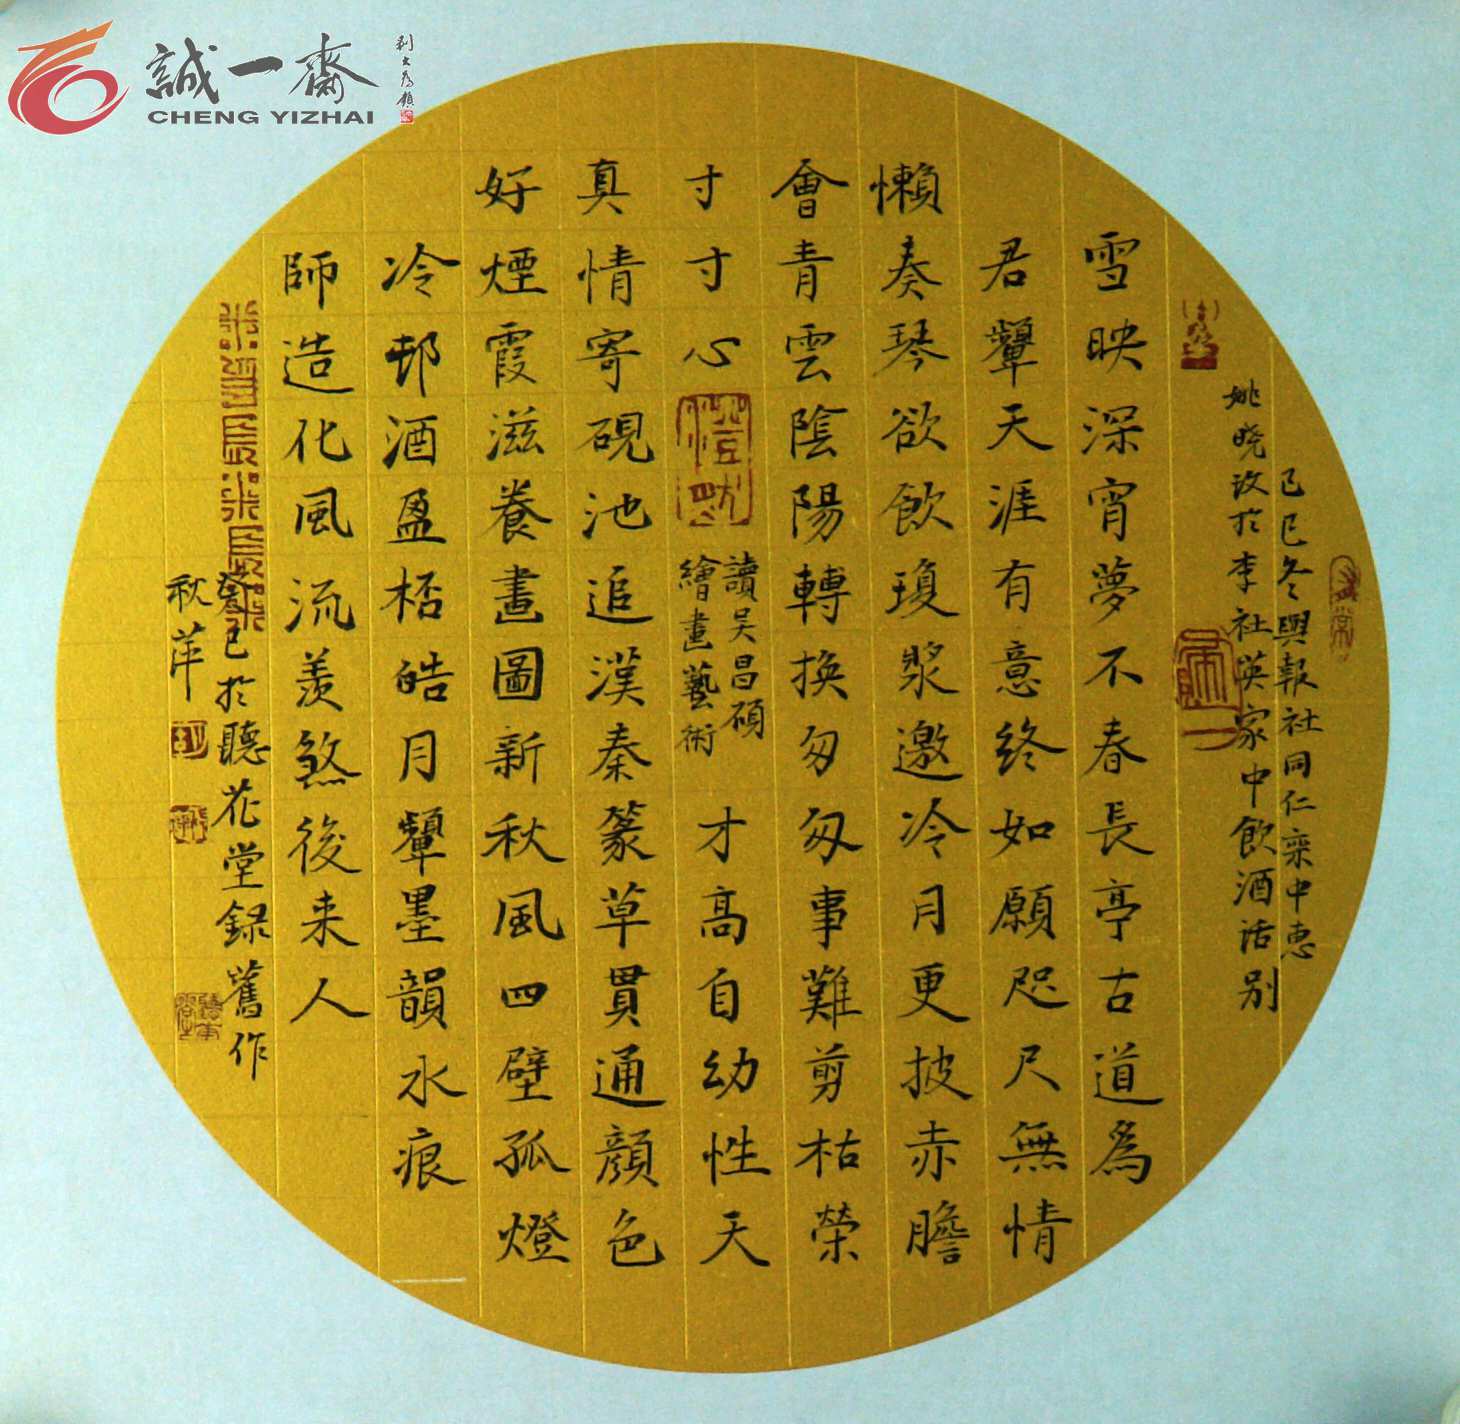 誠一齋
CHENG YIZHAI
己巳冬與報社同仁栾中惠
姚曉玫於李社英家中飲酒話別
雪映深宵夢不春長亭古道為
君顰天涯有意終如願咫尺無情
懶奏琴欲飲瓊漿邀冷月更披赤膽
會青雲陰陽轉換匆匆事難剪枯榮
寸寸心
讀吳昌碩
繪畫藝術
才高自幼性天
真情寄硯池追漢秦篆草貫通顏色
好煙霞滋養畫圖新秋風四壁孤燈
冷邨酒盈桮皓月顰墨韻水痕
師造化風流羨煞後来人
癸巳於聽花堂録舊作
秋萍